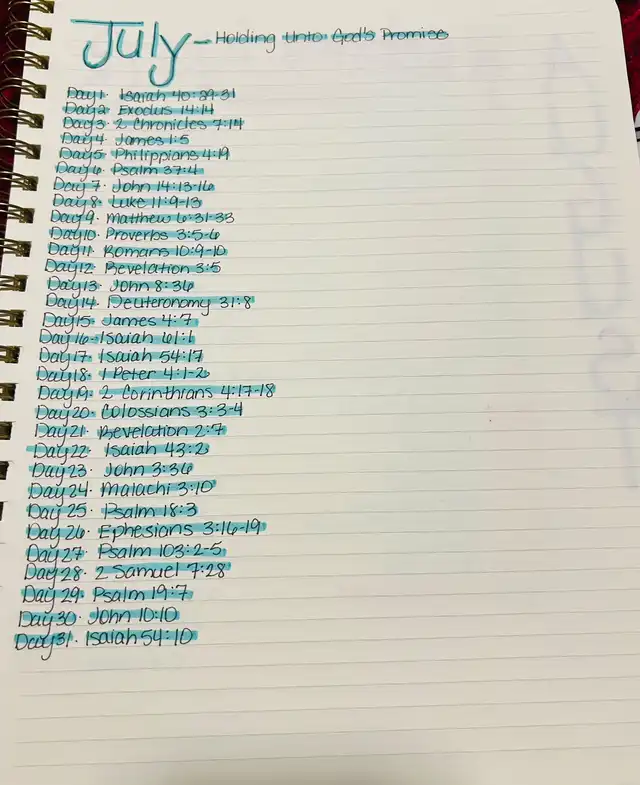 July - Holding Unto God's Promise
Day 1. Isaiah 40:29-31
Day 2. Exodus 14:14
Day 3. 2 Chronicles 7:14
Day 4. James 1:5
Day 5. Philippians 4:19
Day 6. Psalm 37:4
Day 7. John 14:13-16
Day 8. Luke 11:9-13
Day 9. Matthew 6:31-33
Day 10. Proverbs 3:5-6
Day 11. Romans 10:9-10
Day 12. Revelation 3:5
Day 13. John 8:36
Day 14. Deuteronomy 31:8
Day 15. James 4:7
Day 16. Isaiah 61:1
Day 17. Isaiah 54:17
Day 18. 1 Peter 4:1-2
Day 19. 2 Corinthians 4:17-18
Day 20. Colossians 3:3-4
Day 21. Revelation 2:7
Day 22. Isaiah 43:2
Day 23. John 3:36
Day 24. Malachi 3:10
Day 25. Psalm 18:3
Day 26. Ephesians 3:16-19
Day 27. Psalm 103:2-5
Day 28. 2 Samuel 7:28
Day 29. Psalm 19:7
Day 30. John 10:10
Day 31. Isaiah 54:10